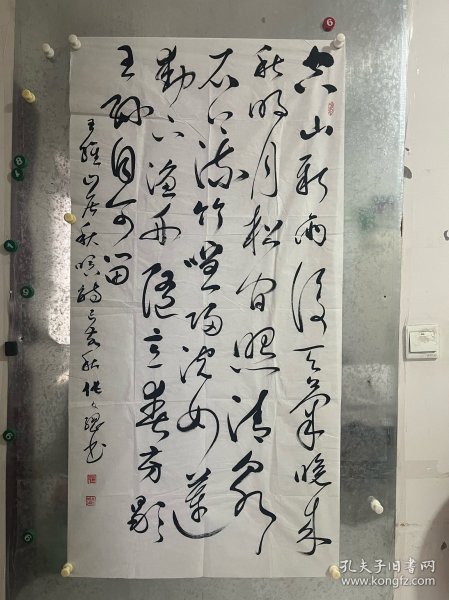 空山新雨后天气晚来
秋明月松间照清泉
石上流竹喧归浣女莲
动下渔舟随意春芳歇
王孙自可留
王维山居秋暝诗己亥秋张
孔夫子旧书网
www.kongfz.com